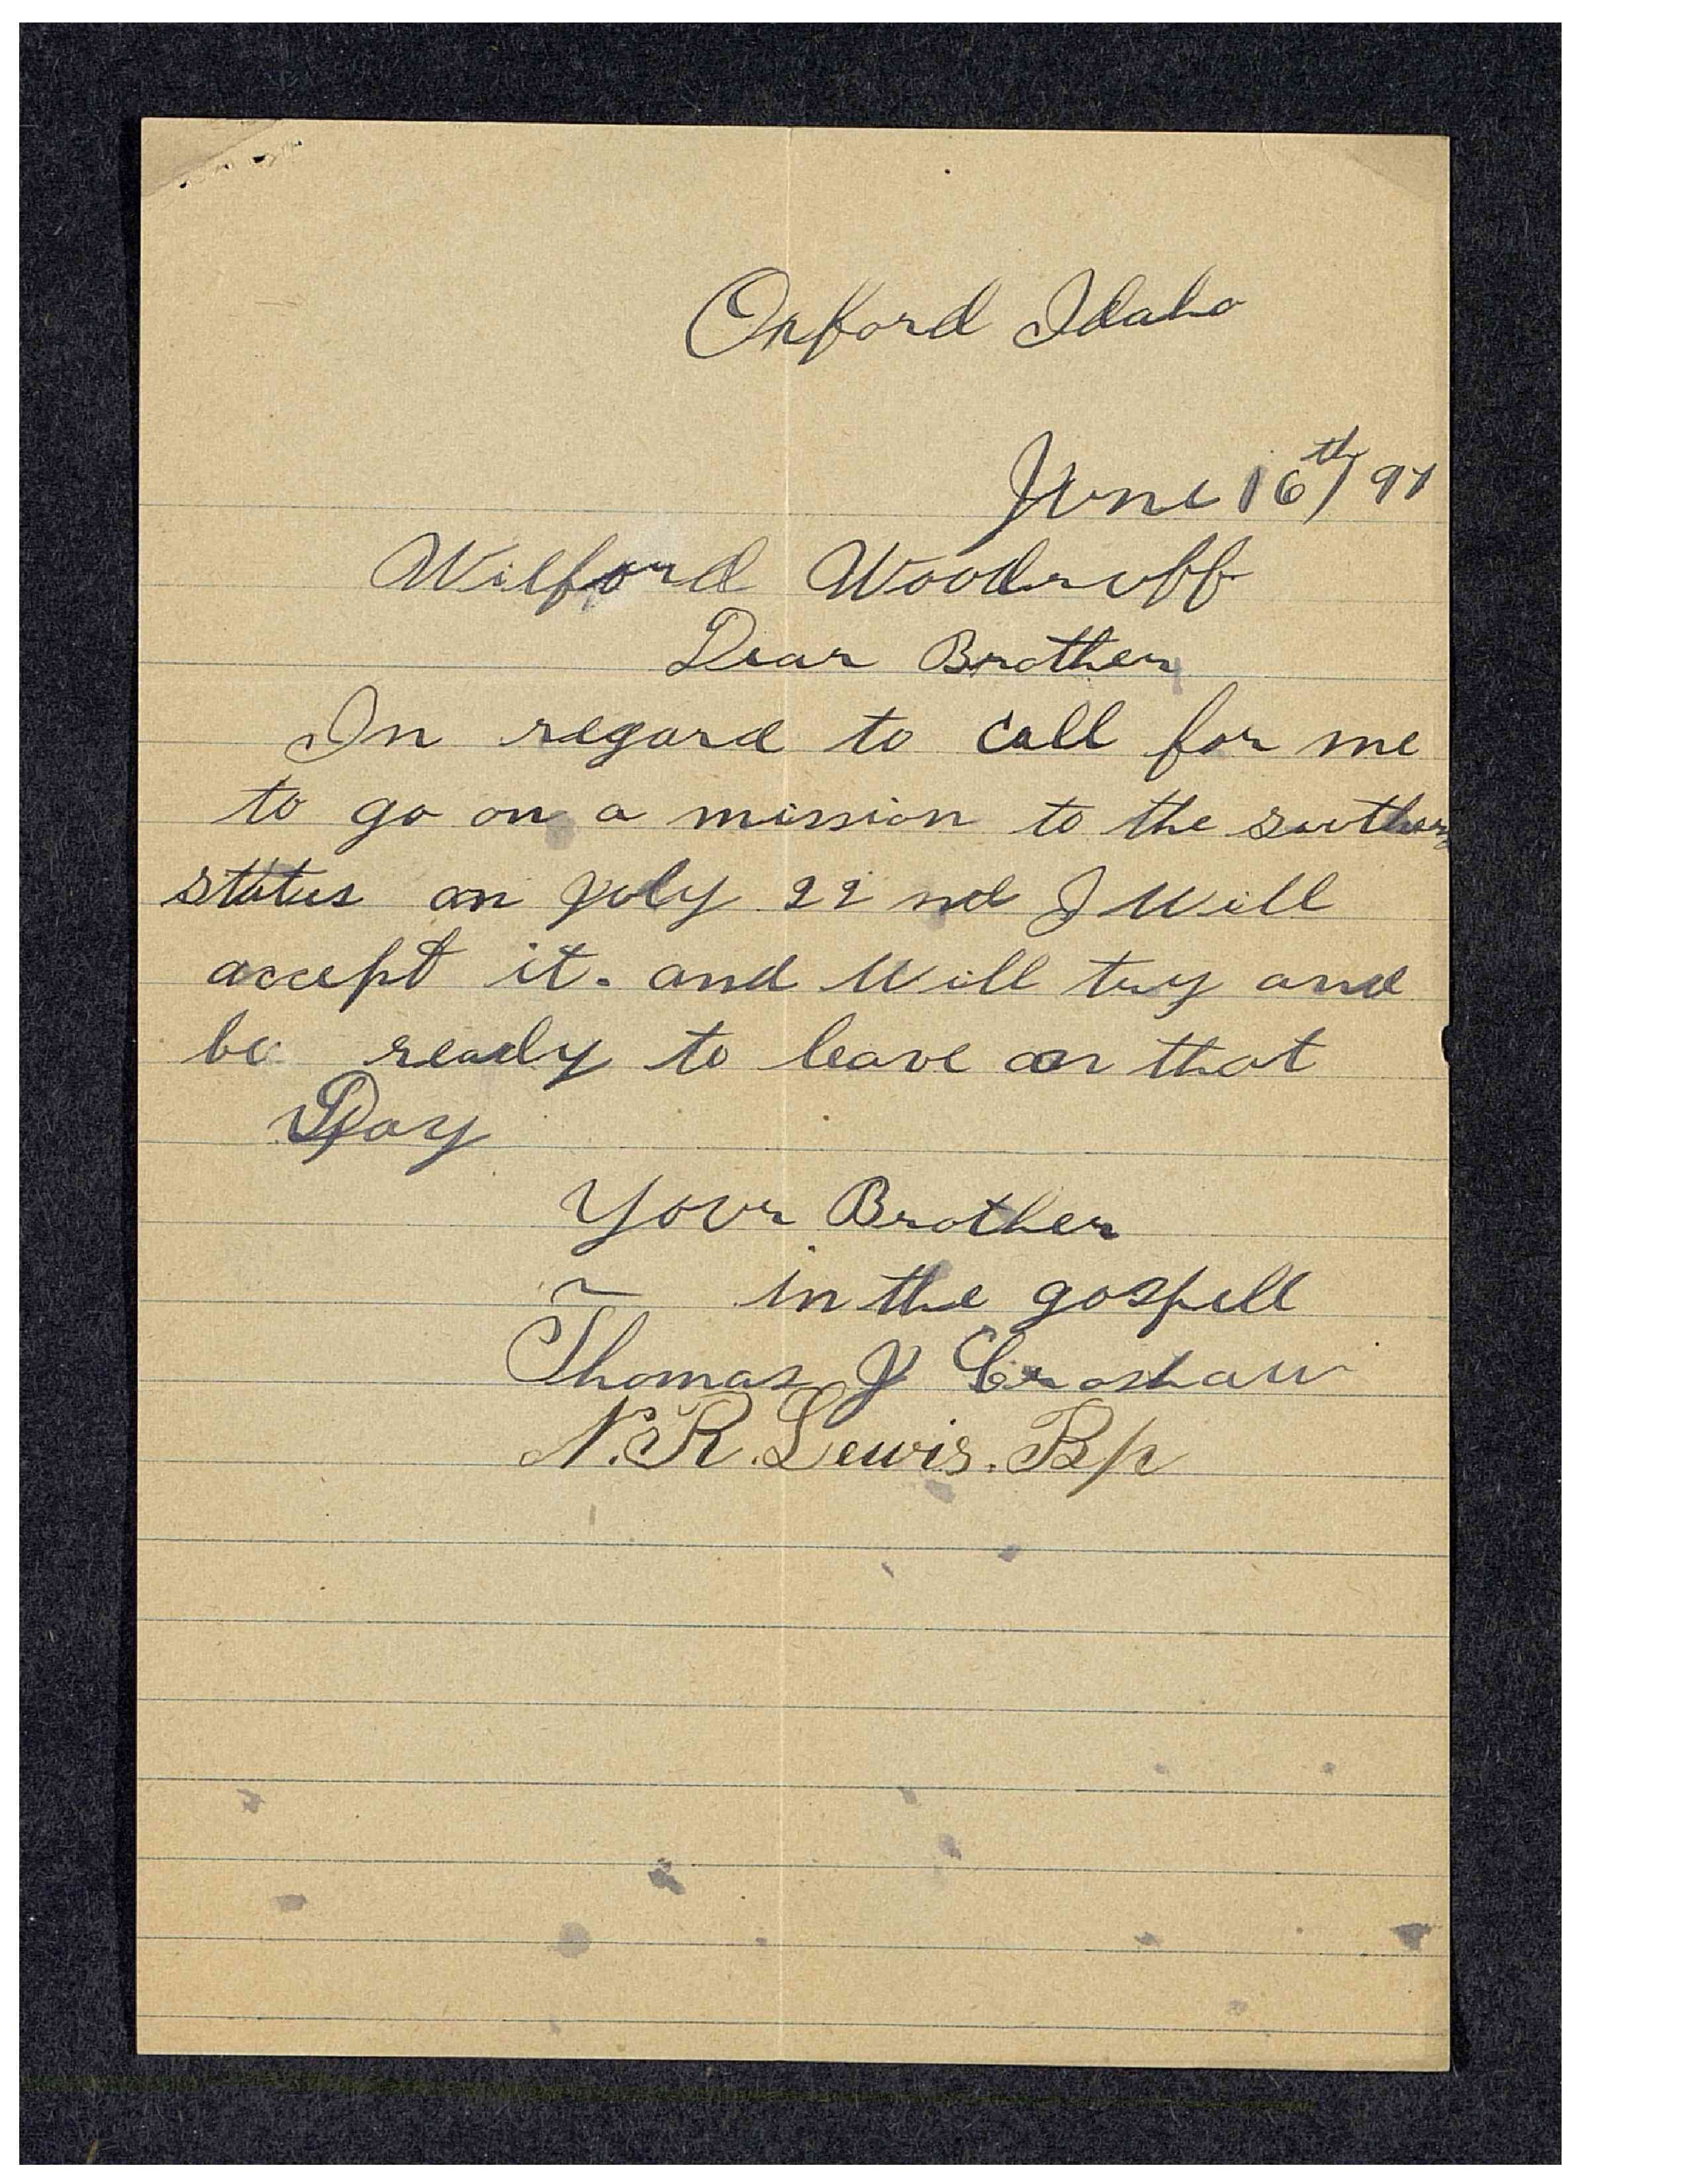 Oxford Idaho
June 16th/97
Wilford Woodruff
Dear Brother
In regard to call for me
to go on a mission to the southern
states on july 22 nd I Will
accept it. and Will try and
be ready to leave on that
Day
Your Brother
in the gospell
Thomas J Croshaw
N. R. Lewis. Bp